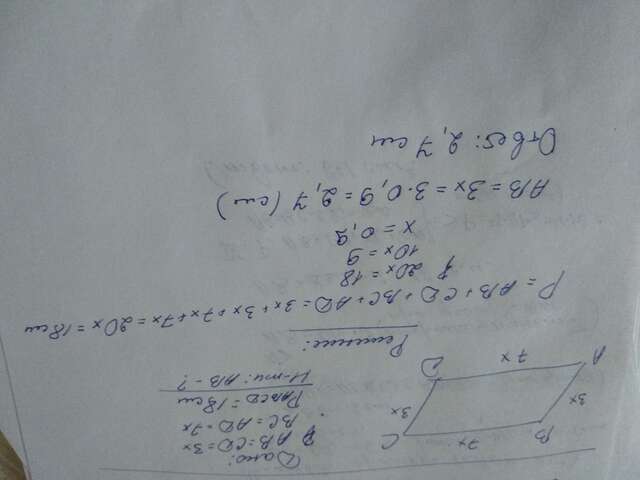 Дано:
AB=CD=3x
BC=AD=7x
PABCD=18см
Н-ти: AB-?
B
C
A
D
7x
3x
3x
7x
Решение:
P=AB+CD+BC+AD=3x+3x+7x+7x=20x=18см
20x=18
10x=9
x=0,9
AB=3x=3·0,9=2,7 (см)
Ответ: 2,7 см